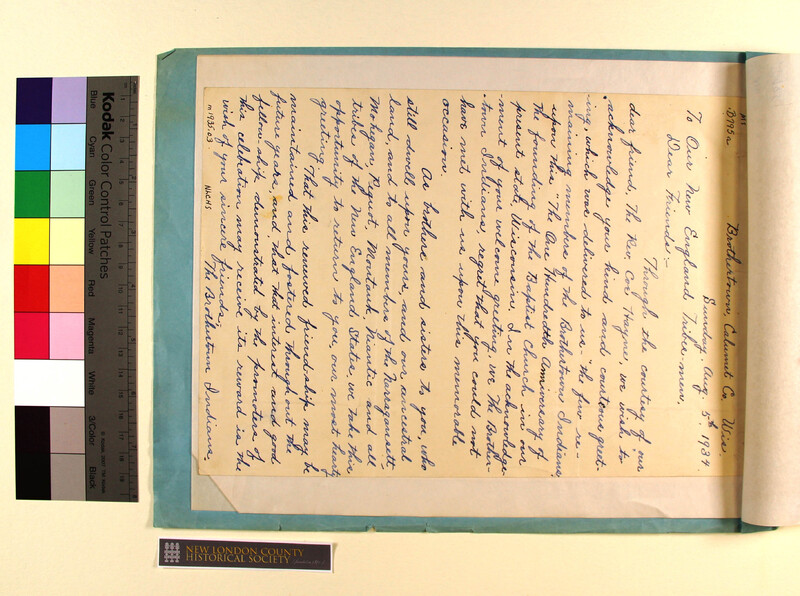 MS
B795a
Brothertown, Calumet Co. Wis.
Sunday, Aug. 5th 1934.
To Our New England Tribesmen,
Dear Friends:-
Through the courtesy of our
dear friend, the Rev. Coe Hayne, we wish to
acknowledge your kind and courteous greet-
ing, which was delivered to us - the few re-
maining members of the Brothertown Indians
upon this "The One Hundredth Anniversary of
the founding of the Baptist Church in our
present state, Wisconsin. In the acknowledge-
ment of your welcome greeting, we The Brother-
town Indians, regret that you could not
have met with us upon this memorable
occasion.
As brothers and sisters to you who
still dwell upon yours, and our ancestral
land, and to all members of the Narragansett
Mohegan, Pequot, Montauk, Niantic and all
tribes of the New England States, we take this
opportunity to return to you, our most hearty
greeting.
That this renewed friendship may be
maintained and fostered throughout the
future years, and that that interest and good
fellowship demonstrated by the promoters of
this celebration may receive its reward is the
wish of your sincere friends,
The Brothertown Indians,
m 1935.63
NLCHS
Kodak Color Control Patches
Blue
Cyan
Green
Yellow
Red
Magenta
White
3/Color
Black
NEW LONDON COUNTY
HISTORICAL SOCIETY